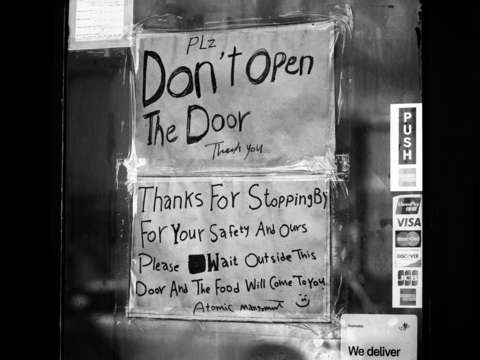 PLz
Don't Open
The Door
Thank you
Thanks For Stopping By
For Your Safety And Ours
Please Wait Outside This
Door And The Food Will Come To You
Atomic
PUSH
VISA
MasterCard
DISCOVER
JCB
We deliver